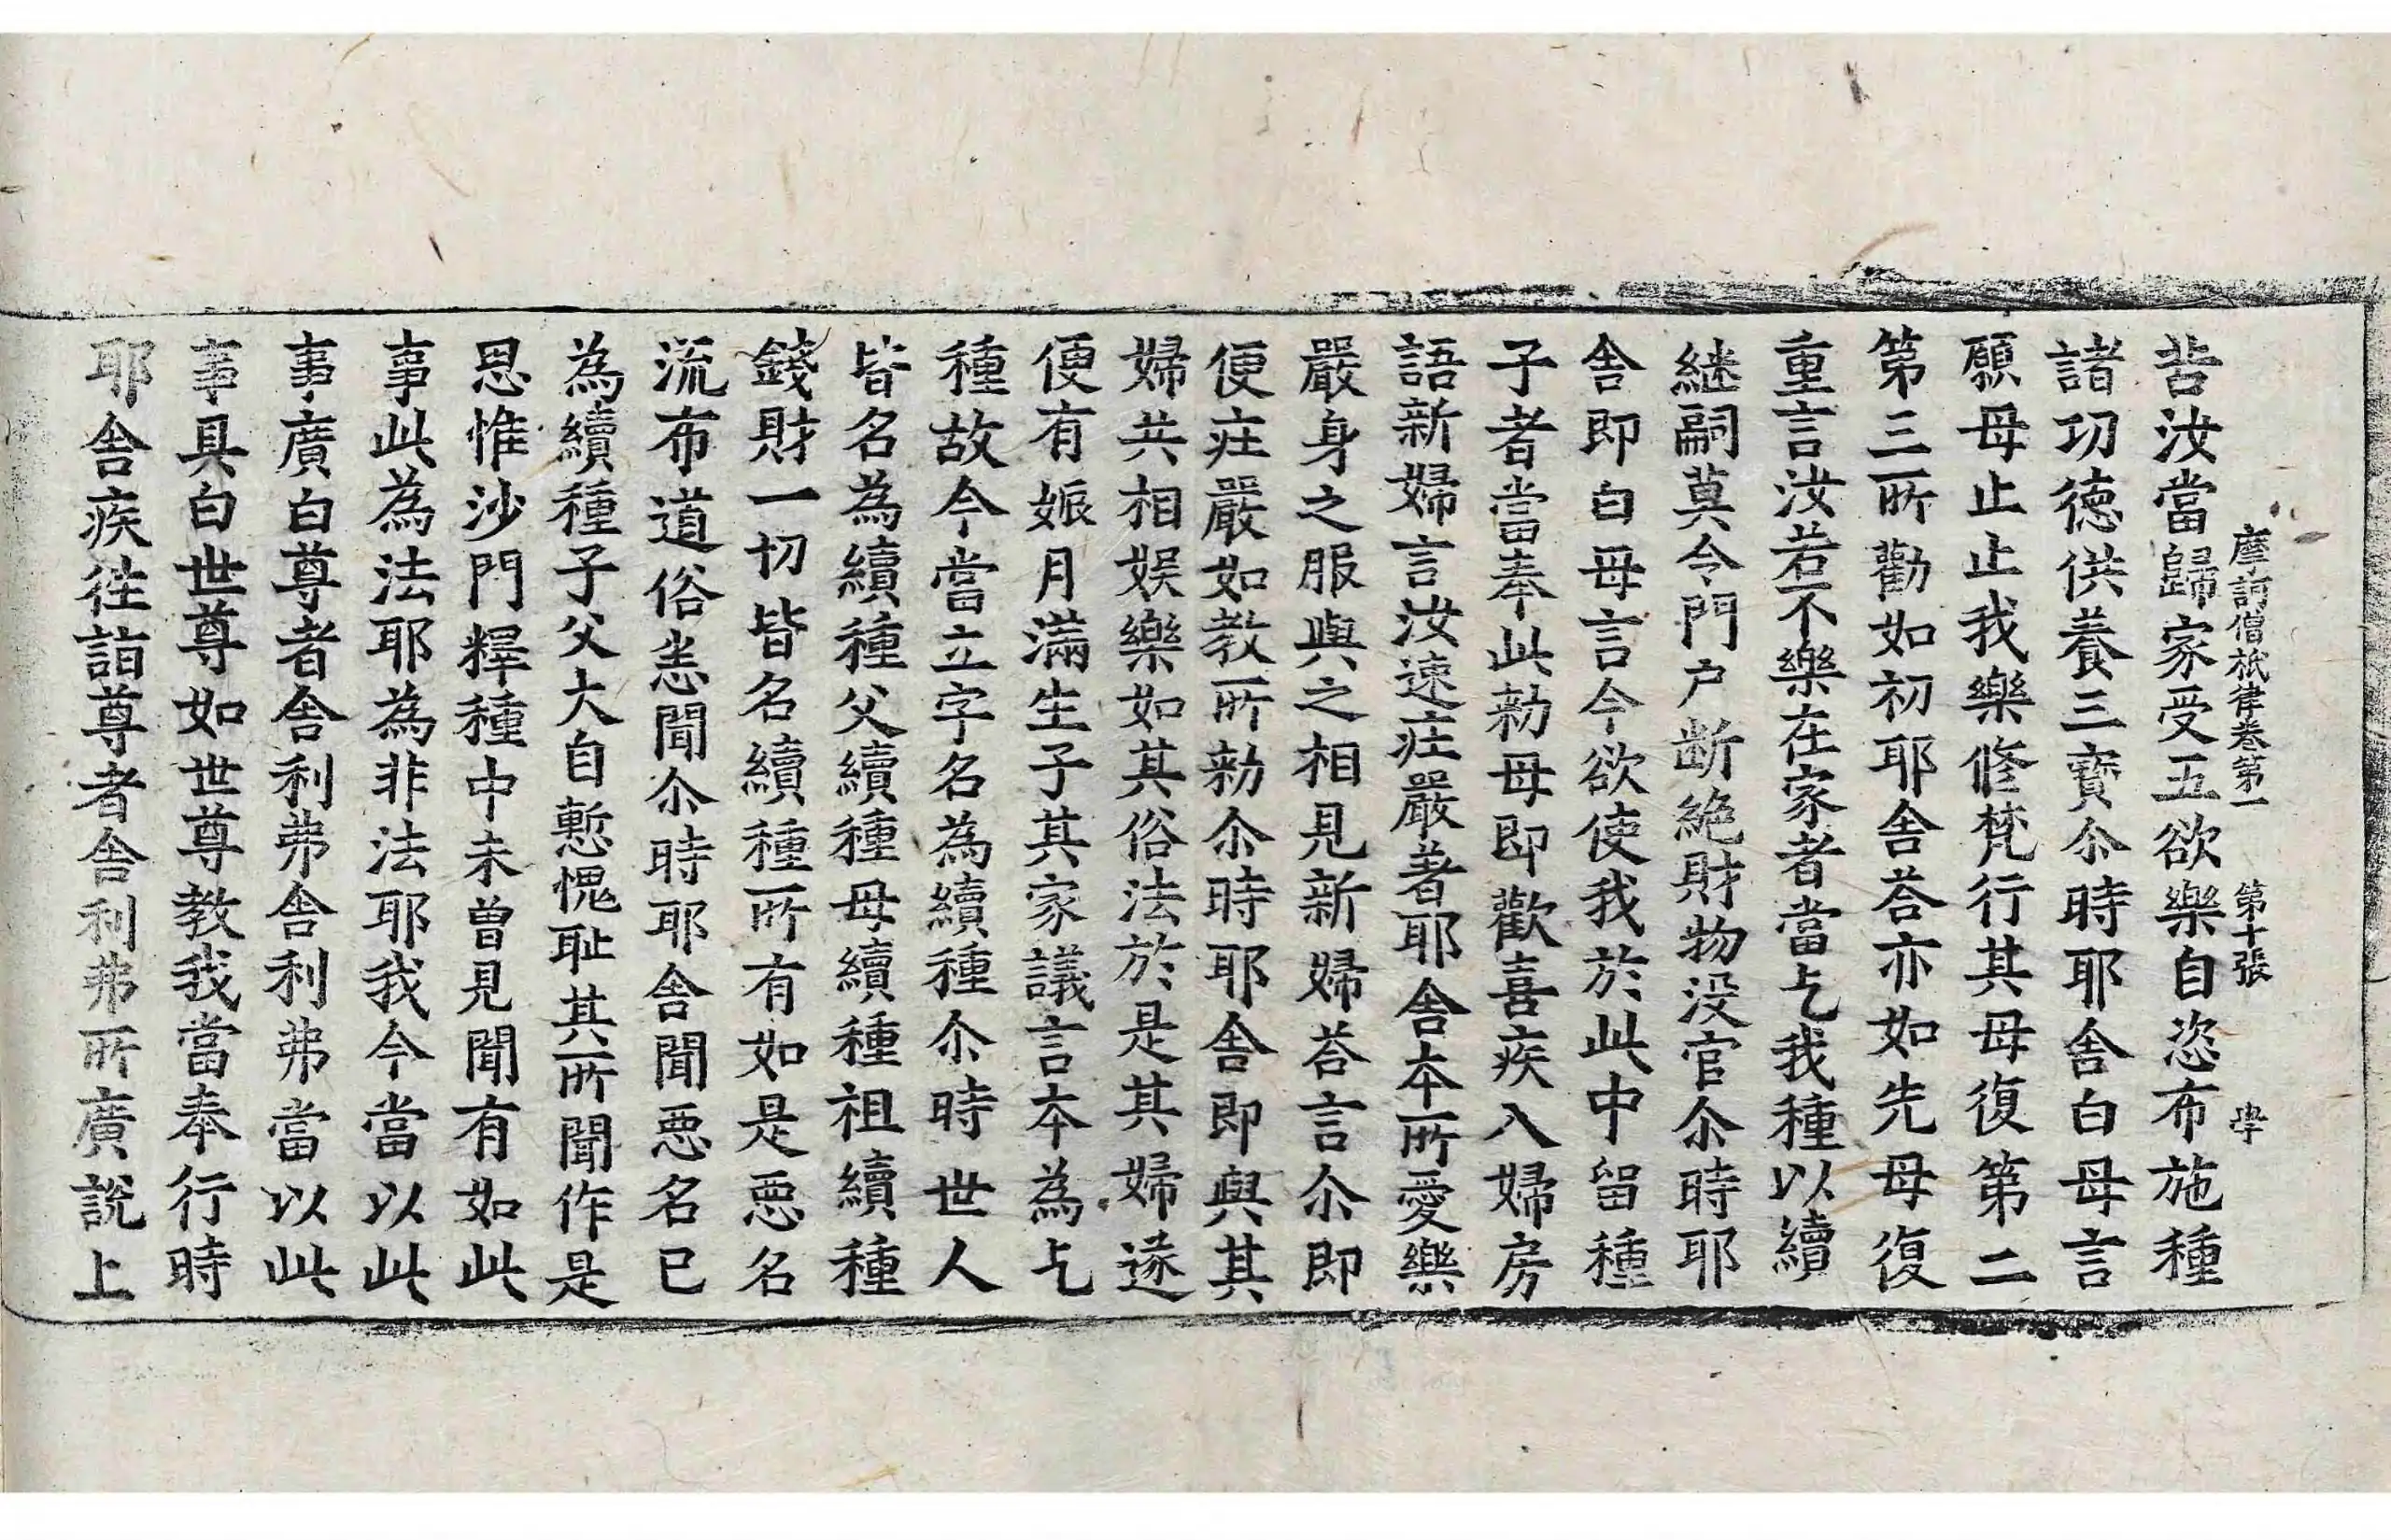 苦汝當歸家受五欲樂自恣布施種
摩訶僧祇律卷第一 第十張 學
諸功德供養三寶尒時耶舍白母言
願母止止我樂修梵行其母復第二
第三所勸如初耶舍荅亦如先母復
重言汝若不樂在家者當乞我種以續
継嗣莫令門户断絶財物没官尒時耶
舍即白母言今欲使我於此中留種
子者當奉此勑母即歡喜疾入婦房
語新婦言汝速庄嚴著耶舍本所愛樂
嚴身之服與之相見新婦荅言尒即
便庄嚴如教所勑尒時耶舍即與其
婦共相娱樂如其俗法於是其婦遂
便有娠月滿生子其家議言本為乞
種故今當立字名為續種尒時世人
皆名為續種父續種母續種祖續種
錢財一切皆名續種所有如是惡名
流布道俗悉聞尒時耶舍聞惡名已
為續種子父大自慙愧耻其所聞作是
思惟沙門釋種中未曾見聞有如此
事此為法耶為非法耶我今當以此
事廣白尊者舍利弗舍利弗當以此
事具白世尊如世尊教我當奉行時
耶舍疾往詣尊者舍利弗所廣說上